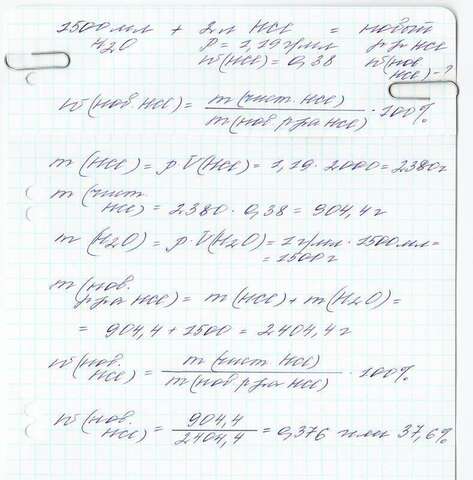 1500 мл + 2л HCl = новый
H2O ρ = 1,19 г/мл р-ра HCl
w(HCl) = 0,38 w(нов. HCl) - ?
w(нов. HCl) = m(чист. HCl) / m(нов. р-ра HCl) · 100%
m(HCl) = ρ·V(HCl) = 1,19 · 2000 = 2380 г
m(чист. HCl) = 2380 · 0,38 = 904,4 г
m(H2O) = ρ·V(H2O) = 1 г/мл · 1500 мл =
= 1500 г
m(нов. р-ра HCl) = m(HCl) + m(H2O) =
= 904,4 + 1500 = 2404,4 г
w(нов. HCl) = m(чист. HCl) / m(нов р-ра HCl) · 100%
w(нов. HCl) = 904,4 / 2404,4 = 0,376 или 37,6%